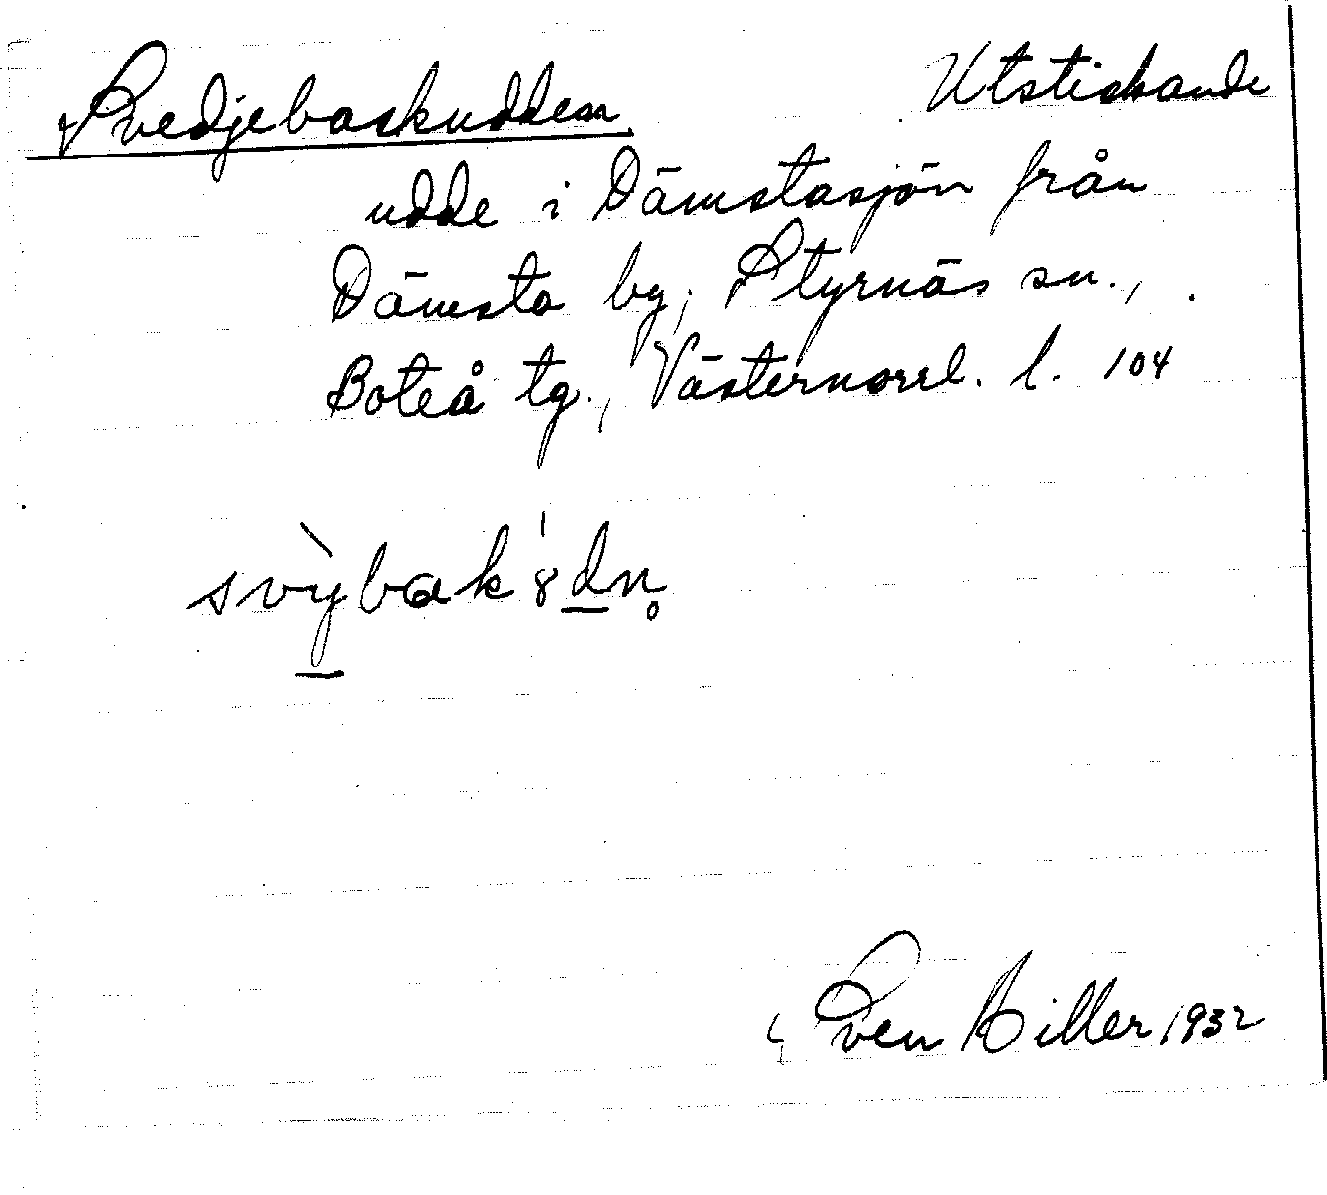 Svedjebackudden Utstickande
udde i Dämstasjön från
Dämsta by, Styrnäs sn.,
Boteå tg., Västernorrl. l. 104
svỳbak'8dn̥
Sven Hiller 1932